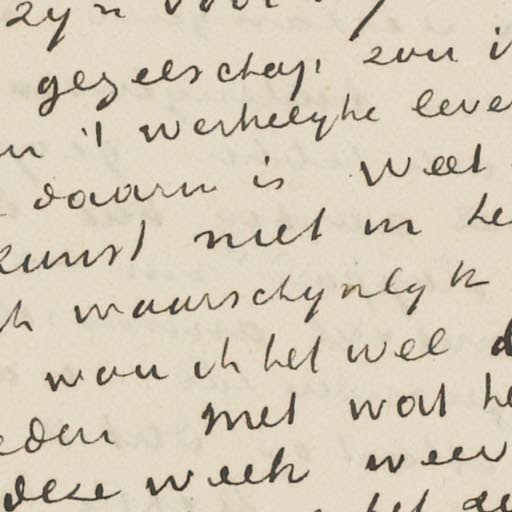 zyn voor
gezelschap, zou i
in 't werkelyke leve
daarin is weet
kunst niet in te
ik waarschynlyk
wou ik het wel d
eden met wat he
deze week weer
het de